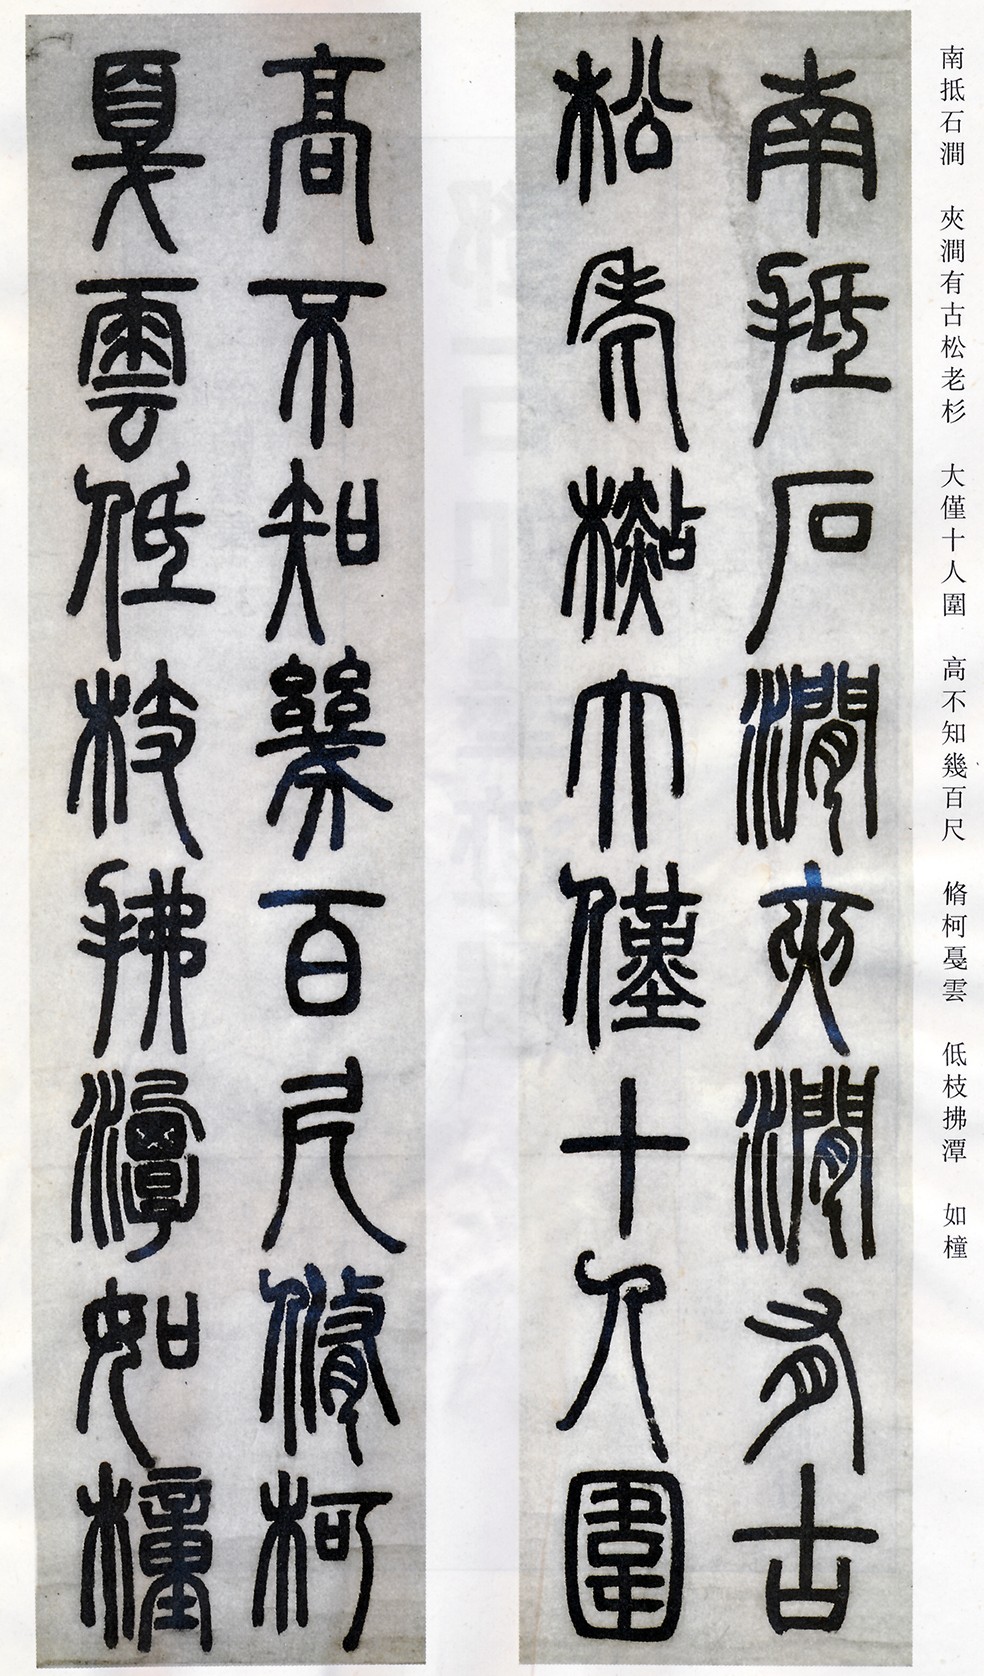 南抵石澗　夾澗有古松老杉　大僅十人圍　高不知幾百尺　脩柯戛雲　低枝拂潭　如橦
南抵石澗夾澗有古
松老檆大僅十人圍
高不知幾百尺脩柯
戛雲低枝拂潭如橦